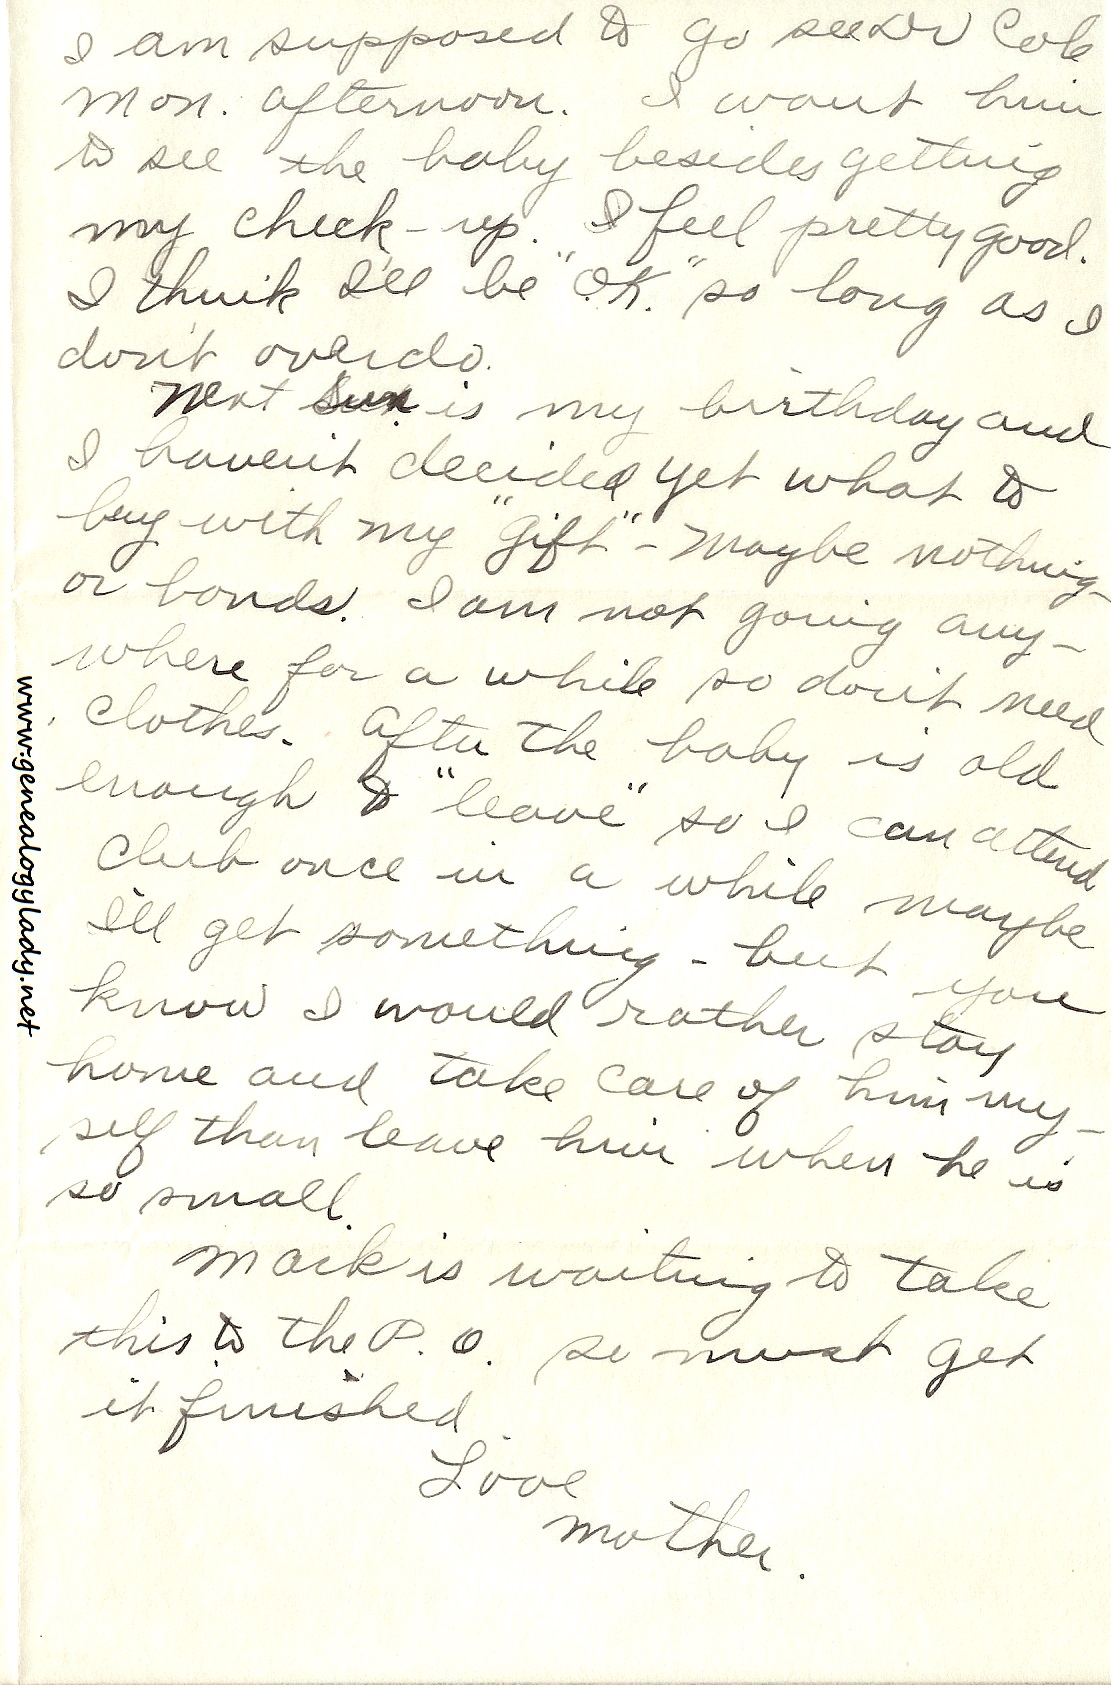 I am supposed to go see Dr Cole
Mon. afternoon. I want him
to see the baby besides getting
my check-up. I feel pretty good.
I think I'll be "O.K." so long as I
don't overdo.
Next Sun. is my birthday and
I haven't decided yet what to
buy with my "gift" - Maybe nothing -
or bonds. I am not going any-
where for a while so don't need
clothes. After the baby is old
enough to "leave" so I can attend
Club once in a while maybe
I'll get something - but you
know I would rather stay
home and take care of him my-
self than leave him when he is
so small.
Mark is waiting to take
this to the P. O. so must get
it finished
Love
Mother.
www.genealogylady.net